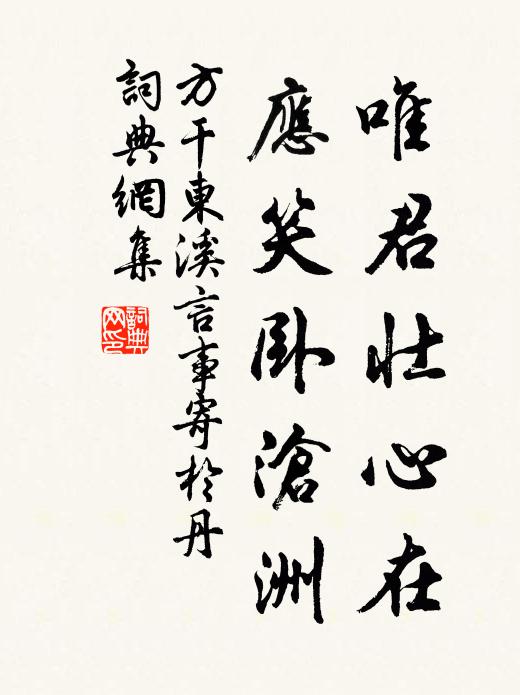 唯君壯心在
應笑臥滄洲
方干東溪言事寄於丹
詞典網集
詞典网印